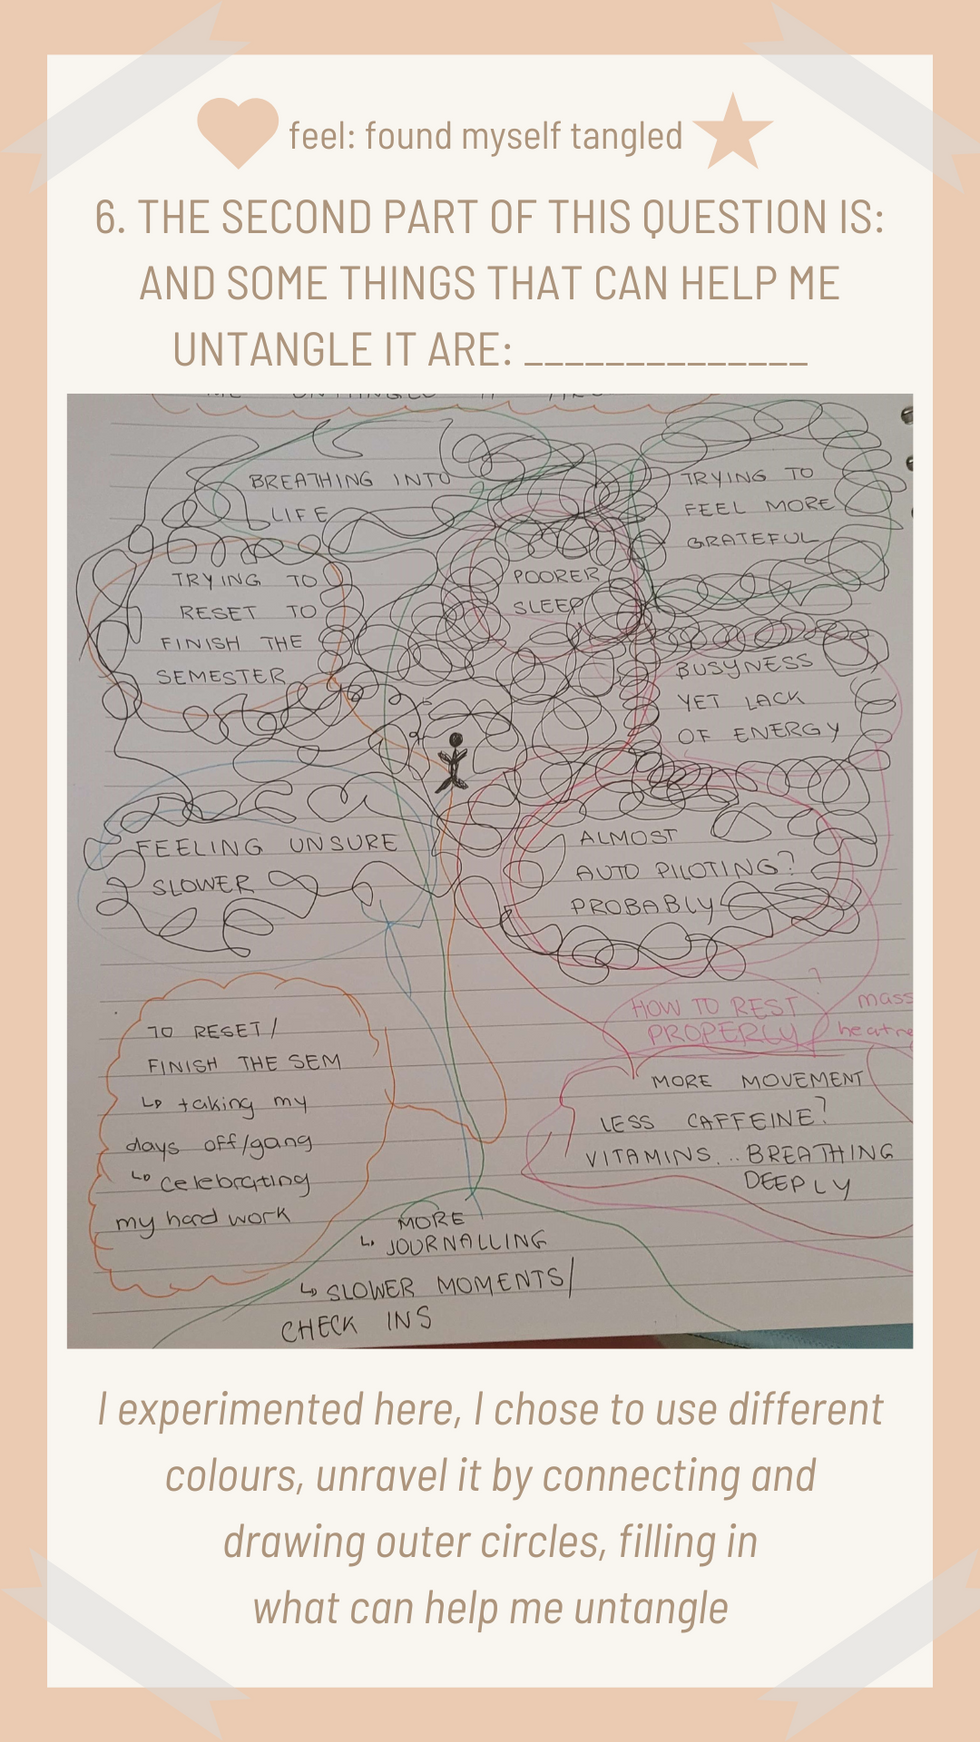 feel: found myself tangled
6. THE SECOND PART OF THIS QUESTION IS:
AND SOME THINGS THAT CAN HELP ME
UNTANGLE IT ARE: ______________
BREATHING INTO
LIFE
TRYING TO
FEEL MORE
GRATEFUL
TRYING TO
RESET TO
FINISH THE
SEMESTER
POORER
SLEEP
BUSYNESS
YET LACK
OF ENERGY
FEELING UNSURE
SLOWER
ALMOST
AUTO PILOTING?
PROBABLY
HOW TO REST
PROPERLY?
mass
heatre
TO RESET/
FINISH THE SEM
↳ taking my
days off/gang
↳ celebrating
my hard work
MORE MOVEMENT
LESS CAFFEINE?
VITAMINS... BREATHING
DEEPLY
MORE
↳ JOURNALLING
↳ SLOWER MOMENTS/
CHECK INS
I experimented here, I chose to use different
colours, unravel it by connecting and
drawing outer circles, filling in
what can help me untangle